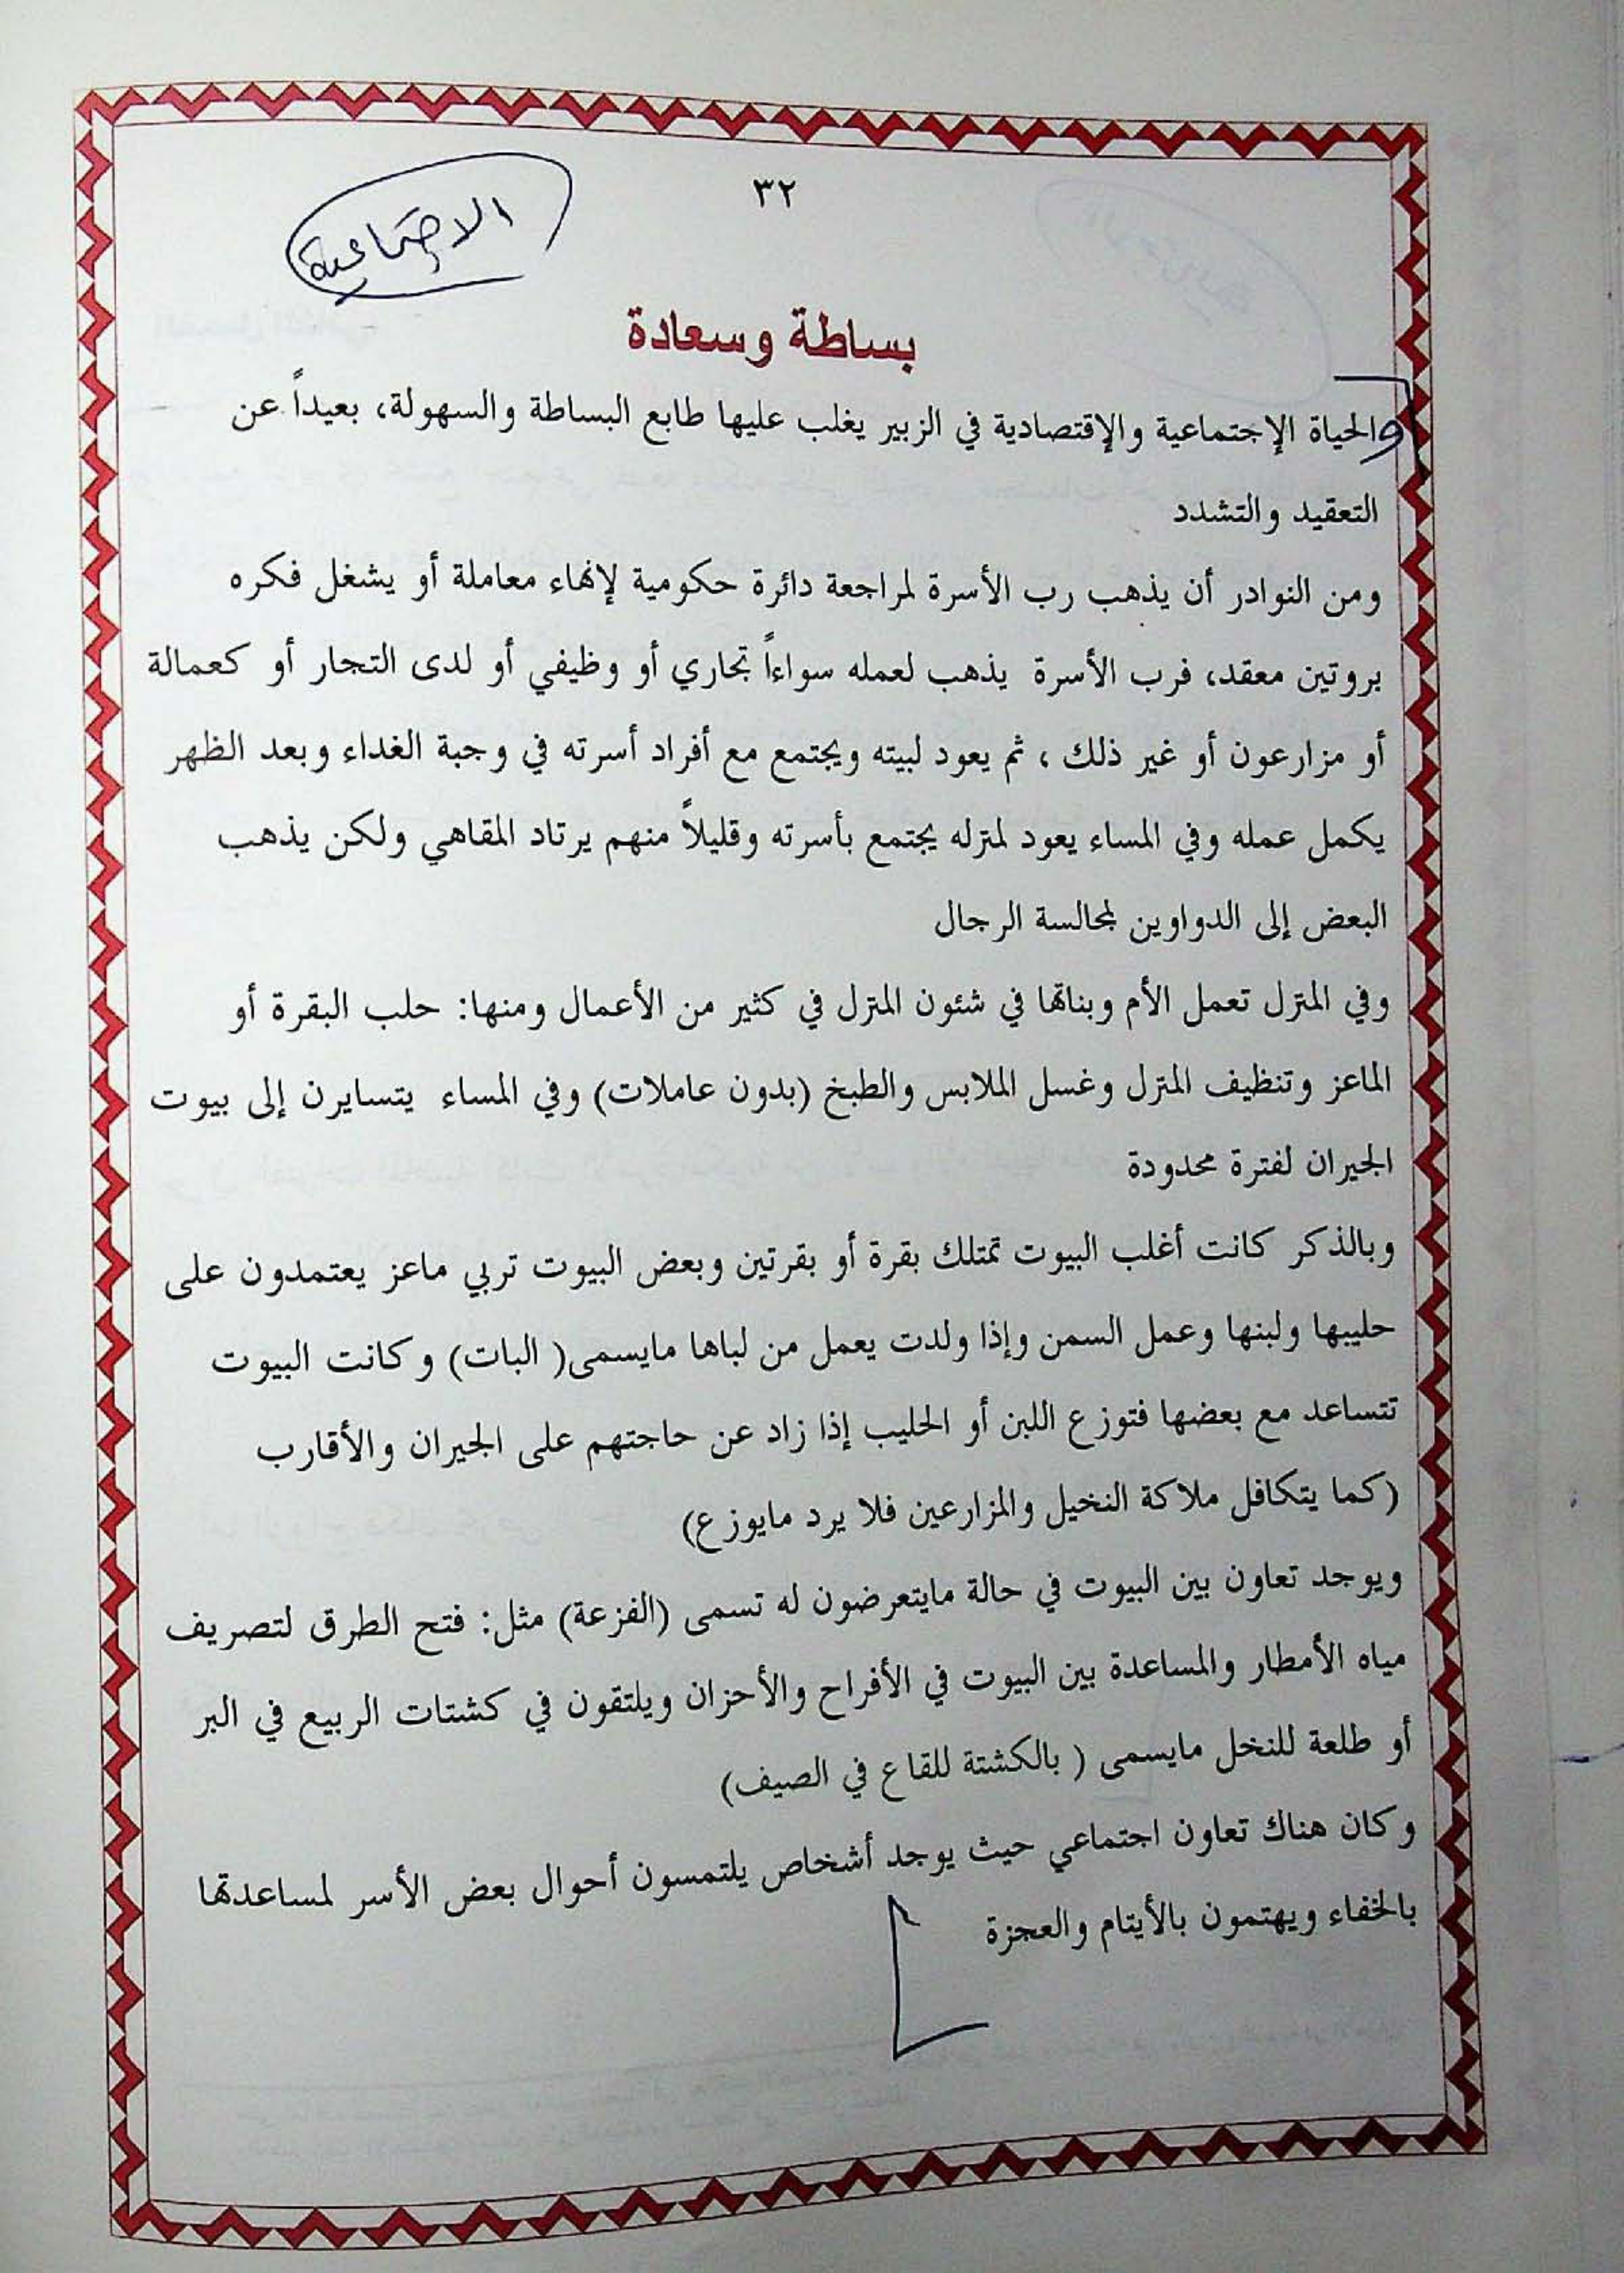 ٣٢
الاجتماعية
بساطة وسعادة
والحياة الإجتماعية والإقتصادية في الزبير يغلب عليها طابع البساطة والسهولة، بعيداً عن
التعقيد والتشدد
ومن النوادر أن يذهب رب الأسرة لمراجعة دائرة حكومية لإنهاء معاملة أو يشغل فكره
بروتين معقد، فرب الأسرة يذهب لعمله سواءاً تجاري أو وظيفي أو لدى التجار أو كعمالة
أو مزارعون أو غير ذلك ، ثم يعود لبيته ويجتمع مع أفراد أسرته في وجبة الغداء وبعد الظهر
يكمل عمله وفي المساء يعود لمنزله يجتمع بأسرته وقليلاً منهم يرتاد المقاهي ولكن يذهب
البعض إلى الدواوين لمجالسة الرجال
وفي المنزل تعمل الأم وبناتها في شئون المنزل في كثير من الأعمال ومنها: حلب البقرة أو
الماعز وتنظيف المنزل وغسل الملابس والطبخ (بدون عاملات) وفي المساء يتسايرن إلى بيوت
الجيران لفترة محدودة
وبالذكر كانت أغلب البيوت تمتلك بقرة أو بقرتين وبعض البيوت تربي ماعز يعتمدون على
حليبها ولبنها وعمل السمن وإذا ولدت يعمل من لباها مايسمى( البات) وكانت البيوت
تتساعد مع بعضها فتوزع اللبن أو الحليب إذا زاد عن حاجتهم على الجيران والأقارب
(كما يتكافل ملاكة النخيل والمزارعين فلا يرد مايوزع)
ويوجد تعاون بين البيوت في حالة مايتعرضون له تسمى (الفزعة) مثل: فتح الطرق لتصريف
مياه الأمطار والمساعدة بين البيوت في الأفراح والأحزان ويلتقون في كشتات الربيع في البر
أو طلعة للنخل مايسمى ( بالكشتة للقاع في الصيف)
وكان هناك تعاون اجتماعي حيث يوجد أشخاص يلتمسون أحوال بعض الأسر لمساعدتها
بالخفاء ويهتمون بالأيتام والعجزة